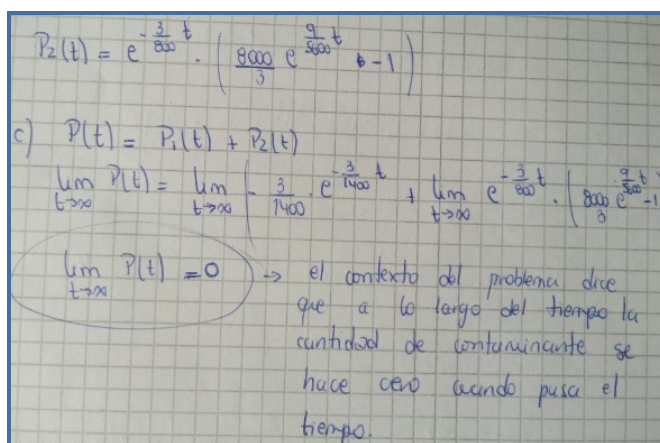 P₂(t) = e^{-3/800 t} · (8000/3 e^{9/5600 t} - 1)
c) P(t) = P₁(t) + P₂(t)
lim t→∞ P(t) = lim t→∞ (- 3/1400 · e^{-3/1400 t} + lim t→∞ e^{-3/800 t} · (8000/3 e^{9/5600 t} - 1
lim t→∞ P(t) = 0 → el contexto del problema dice
que a lo largo del tiempo la
cantidad de contaminante se
hace cero cuando pasa el
tiempo.